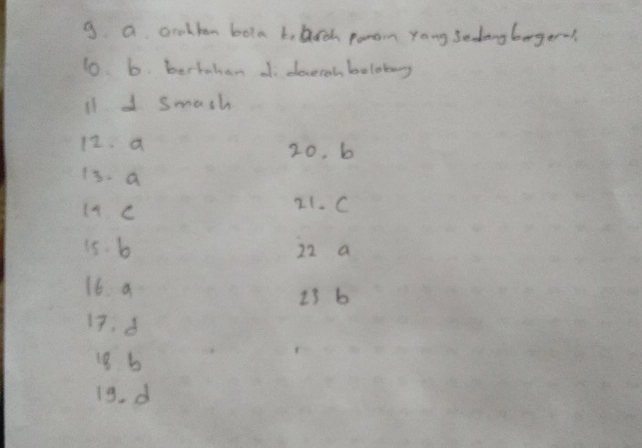 9. a. arahkan bola ke arah pemain yang sedang bergerak
10. b. bertahan di daerah belakang
11 d smash
12. a
13. a
14 c
15. b
16. a
17. d
18 b
19. d
20. b
21. c
22 a
23 b